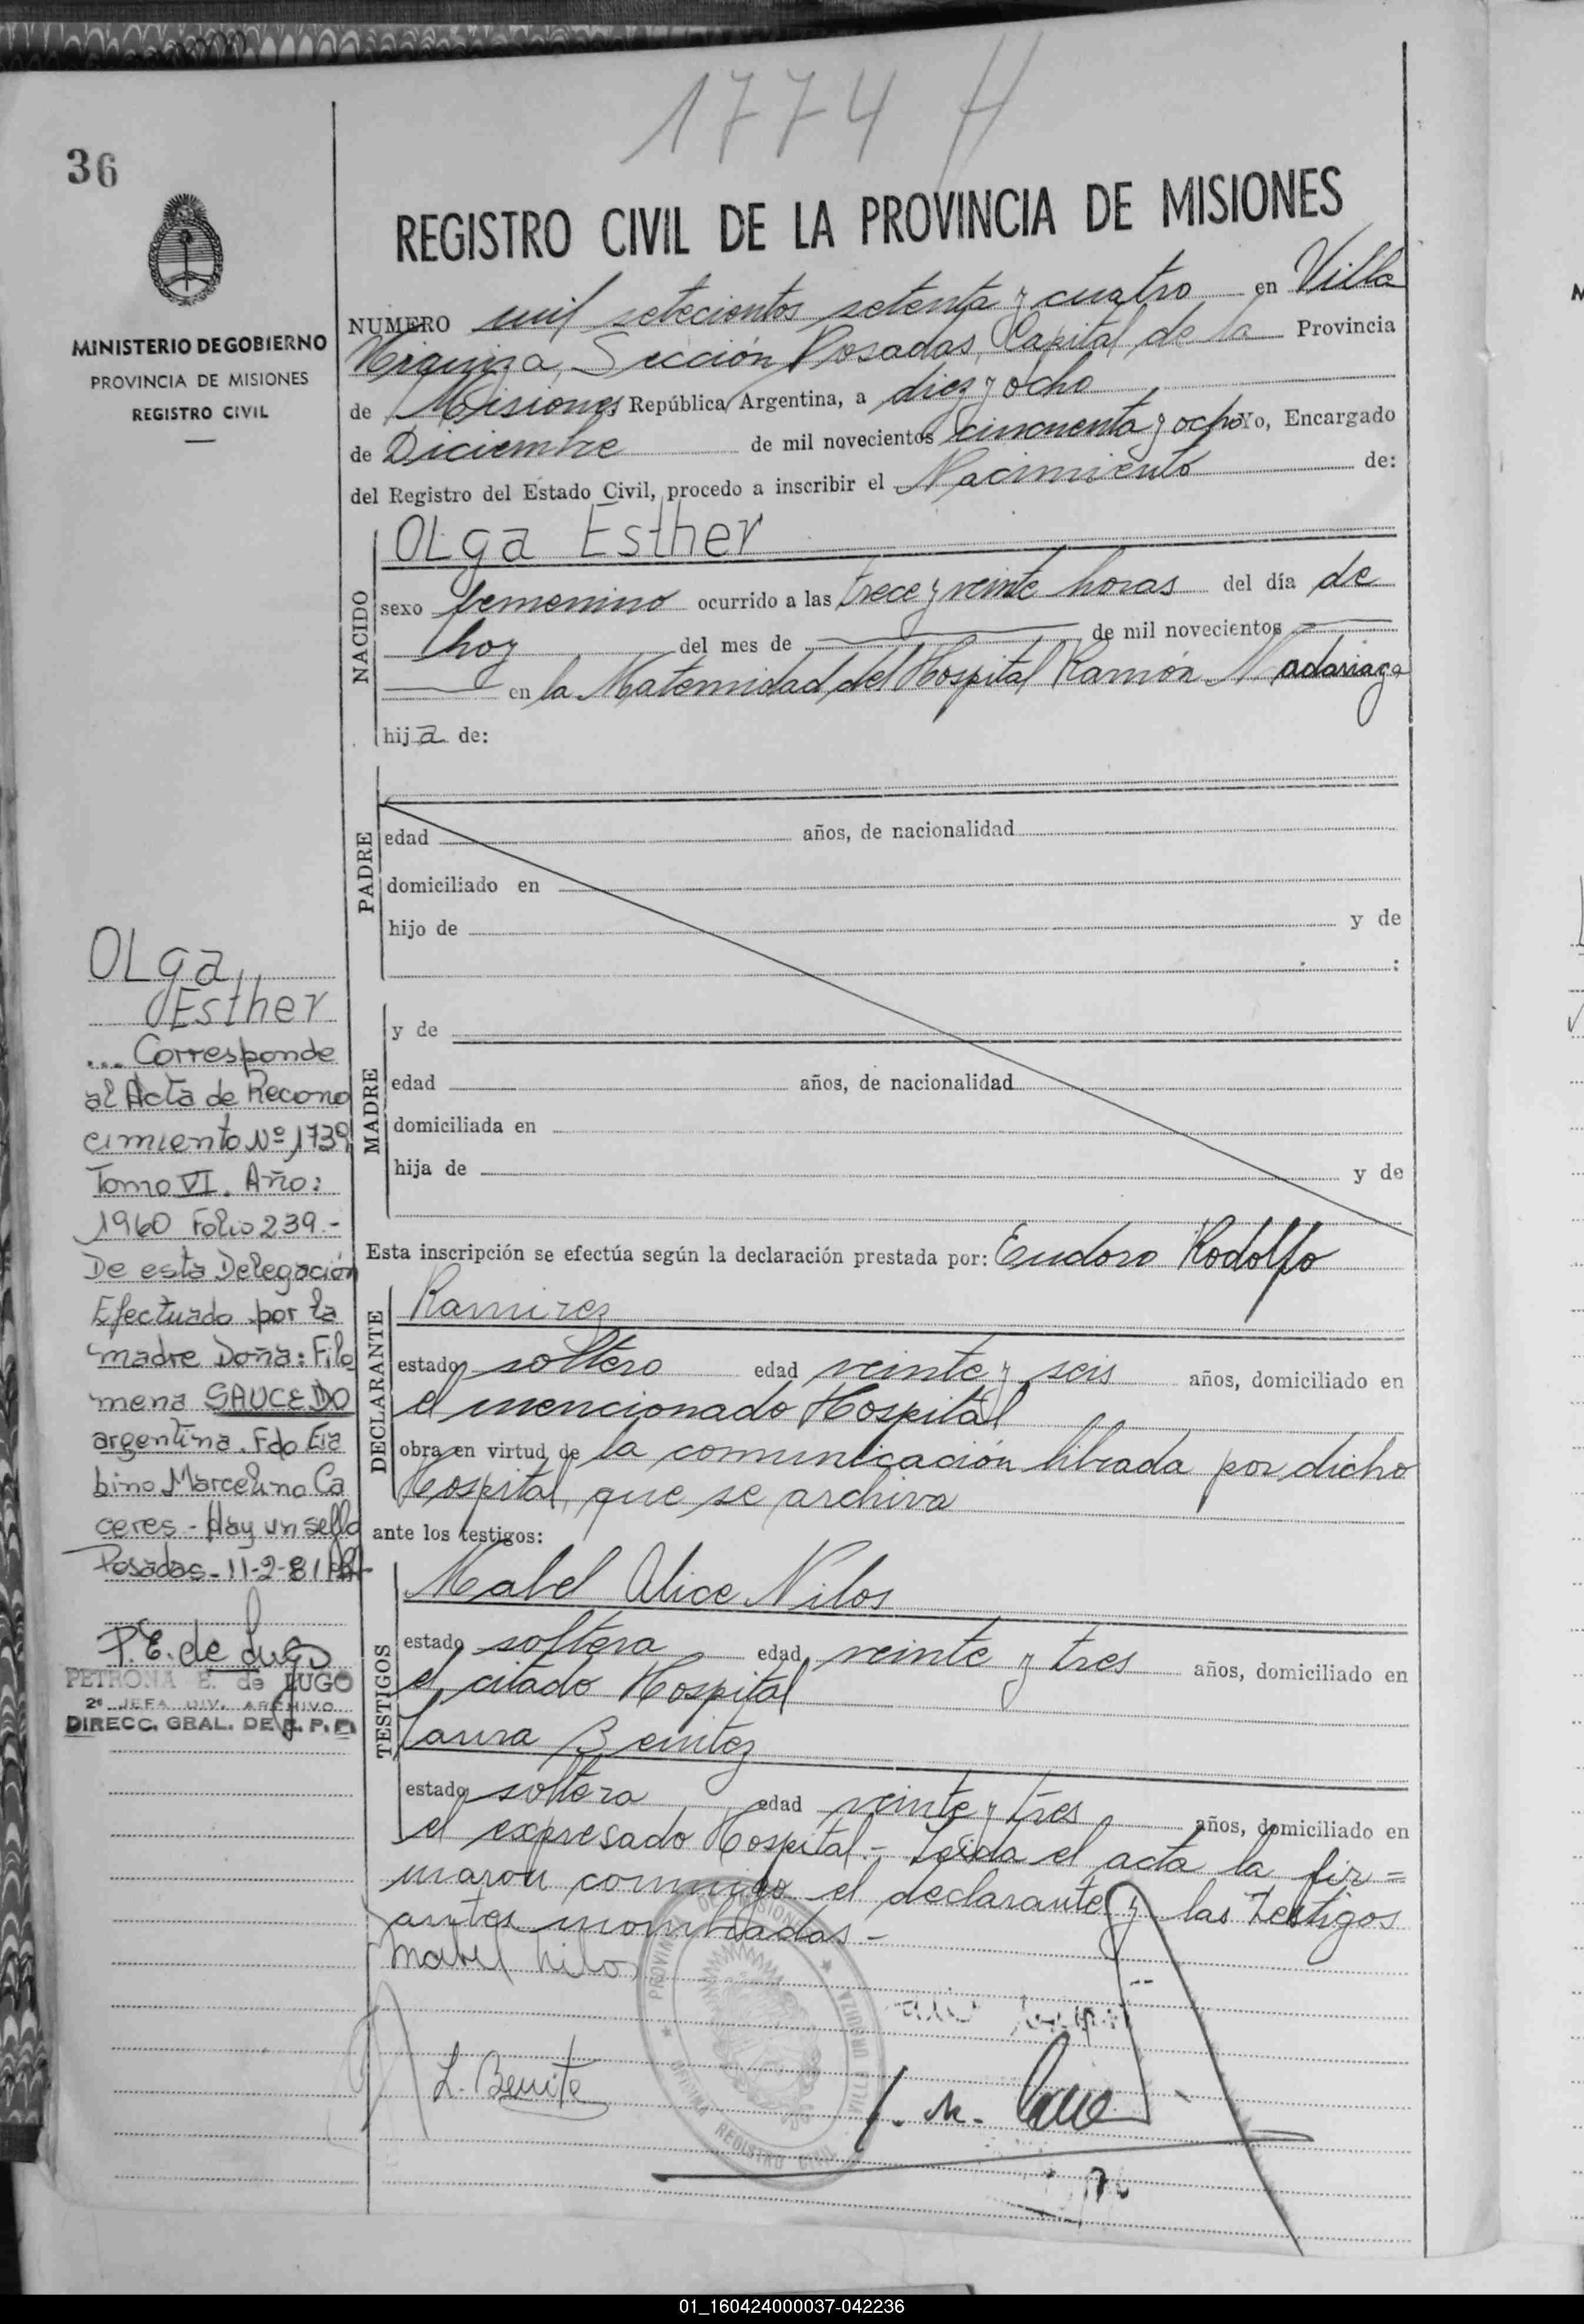 1774 H
36
REGISTRO CIVIL DE LA PROVINCIA DE MISIONES
MINISTERIO DE GOBIERNO
PROVINCIA DE MISIONES
REGISTRO CIVIL
NUMERO mil setecientos setenta y cuatro en Villa
Urquiza, Sección Posadas, Capital de la Provincia
de Misiones República Argentina, a diez y ocho
de Diciembre de mil novecientos cincuenta y ocho Yo, Encargado
del Registro del Estado Civil, procedo a inscribir el Nacimiento de:
NACIDO
OLga Esther
sexo femenino ocurrido a las trece y veinte horas del día de
hoy del mes de de mil novecientos
en la Maternidad del Hospital Ramón Madariaga
hija de:
PADRE
edad años, de nacionalidad
domiciliado en
hijo de y de
:
MADRE
y de
edad años, de nacionalidad
domiciliada en
hija de y de
Esta inscripción se efectúa según la declaración prestada por: Eudoro Rodolfo
DECLARANTE
Ramirez
estado soltero edad veinte y seis años, domiciliado en
el mencionado Hospital
obra en virtud de la comunicación librada por dicho
Hospital, que se archiva
ante los testigos:
TESTIGOS
Mabel Alice Nilos
estado soltera edad veinte y tres años, domiciliado en
el citado Hospital
Laura Benitez
estado soltera edad veinte y tres años, domiciliado en
el expresado Hospital.- Leida el acta la fir=
maron conmigo el declarante y las testigos
antes nombradas -
Mabel Nilos
L. Benite
PROVINCIA DE MISIONES
OFICINA REGISTRO CIVIL
VILLA URQUIZA
OLga
Esther
... Corresponde
al Acta de Recono
cimiento Nº 1739
Tomo VI. Año:
1960 Folio 239.-
De esta Delegación
Efectuado por la
madre Doña: Filo
mena SAUCEDO
argentina. Fdo
bino Marcelino Ca
ceres - Hay un sello
Posadas - 11-2-81
P.E. de Lugo
PETRONA E. de LUGO
2ª JEFA DIV. ARCHIVO
DIRECC. GRAL. DE R. P. P.
01_160424000037-042236